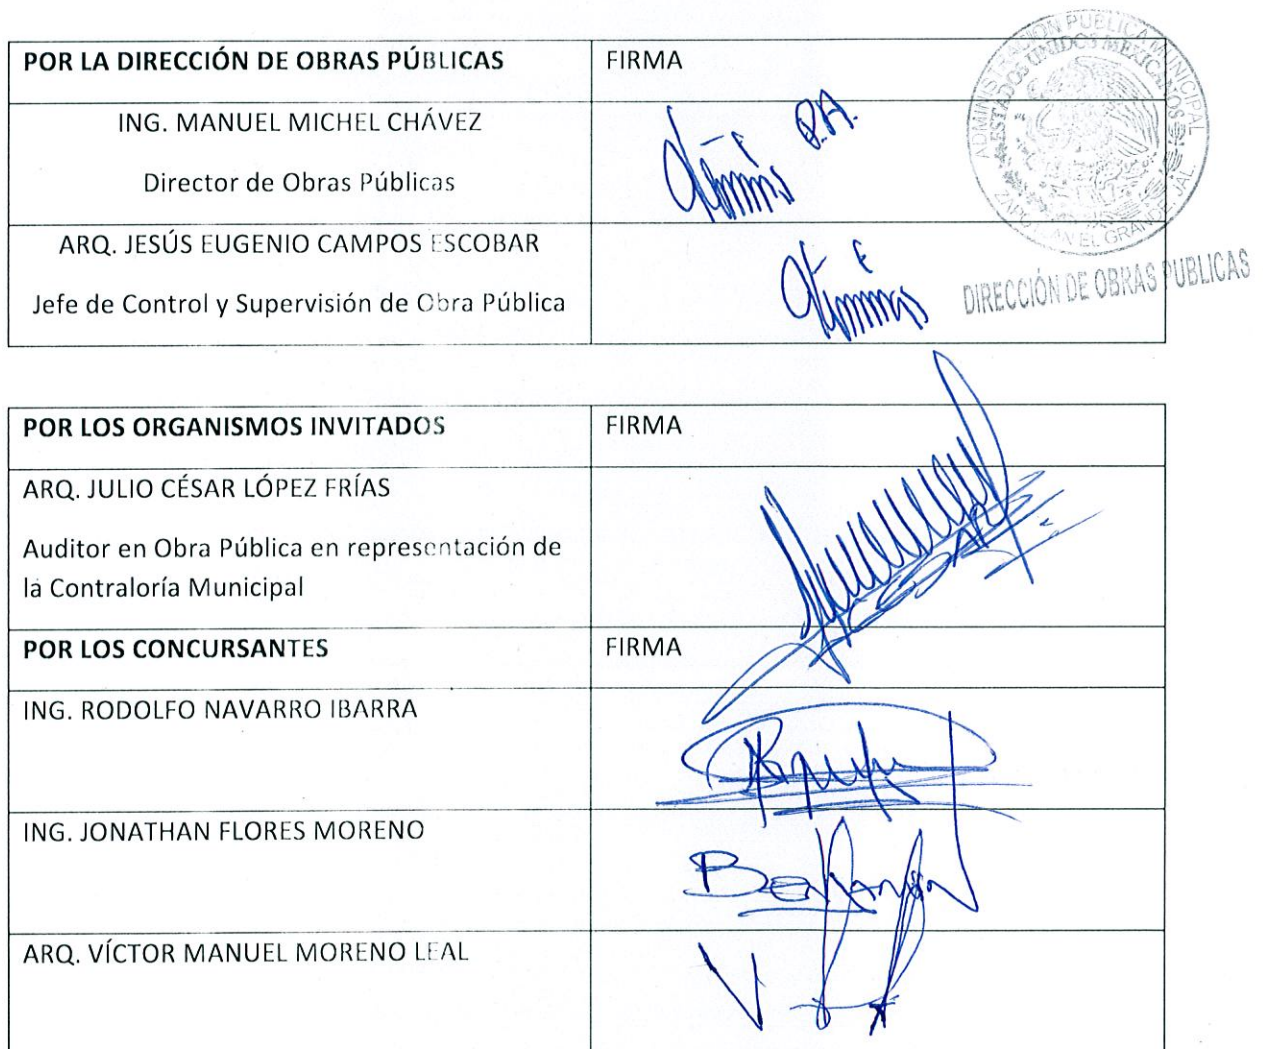 POR LA DIRECCIÓN DE OBRAS PÚBLICAS FIRMA
ING. MANUEL MICHEL CHÁVEZ
Director de Obras Públicas
P.A.
ARQ. JESÚS EUGENIO CAMPOS ESCOBAR
Jefe de Control y Supervisión de Obra Pública
ADMINISTRACIÓN PUBLICA MUNICIPAL
ESTADOS UNIDOS MEXICANOS
ZAPOTLAN EL GRANDE, JAL.
DIRECCIÓN DE OBRAS PUBLICAS
POR LOS ORGANISMOS INVITADOS FIRMA
ARQ. JULIO CÉSAR LÓPEZ FRÍAS
Auditor en Obra Pública en representación de
la Contraloría Municipal
POR LOS CONCURSANTES FIRMA
ING. RODOLFO NAVARRO IBARRA
ING. JONATHAN FLORES MORENO
ARQ. VÍCTOR MANUEL MORENO LEAL